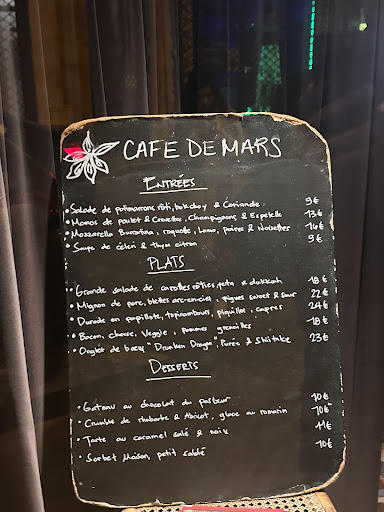 CAFE DE MARS
ENTRÉES
• Salade de potimarrons rôti, bok choy & Coriande 9€
• Momos de poulet & Crevettes, Champignons & Espelette 13€
• Mozzarella Burratina, roquette, Lomo, poires & Noisettes 16€
• Soupe de céleri & Thym citron 9€
PLATS
• Grande salade de carottes rôties, feta & dukkah 18€
• Mignon de porc, blettes arc-en-ciel, figues sweet & sour 22€
• Daurade en papillote, topinambours, piquillo, capres 24€
• Bacon, cheese, Veggie, pommes grenailles 18€
• Onglet de bœuf "Drunken Dragon", Purée & Shiitake 23€
DESSERTS
• Gateau au chocolat du pasteur 10€
• Crumble de rhubarbe & Abricot, glace au romarin 10€
• Tarte au caramel salé & noix 11€
• Sorbet Maison, petit sablé 10€